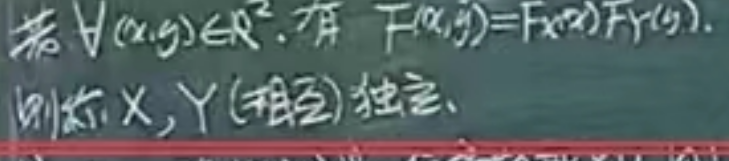 若∀(x,y)∈R². 有 F(x,y)=Fx(x)FY(y).
则称 X,Y(相互)独立、